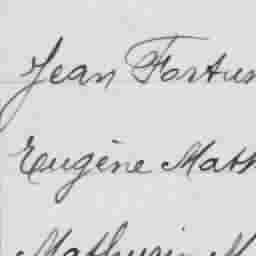 Jean Fortun
Eugène Math
Mathurin M